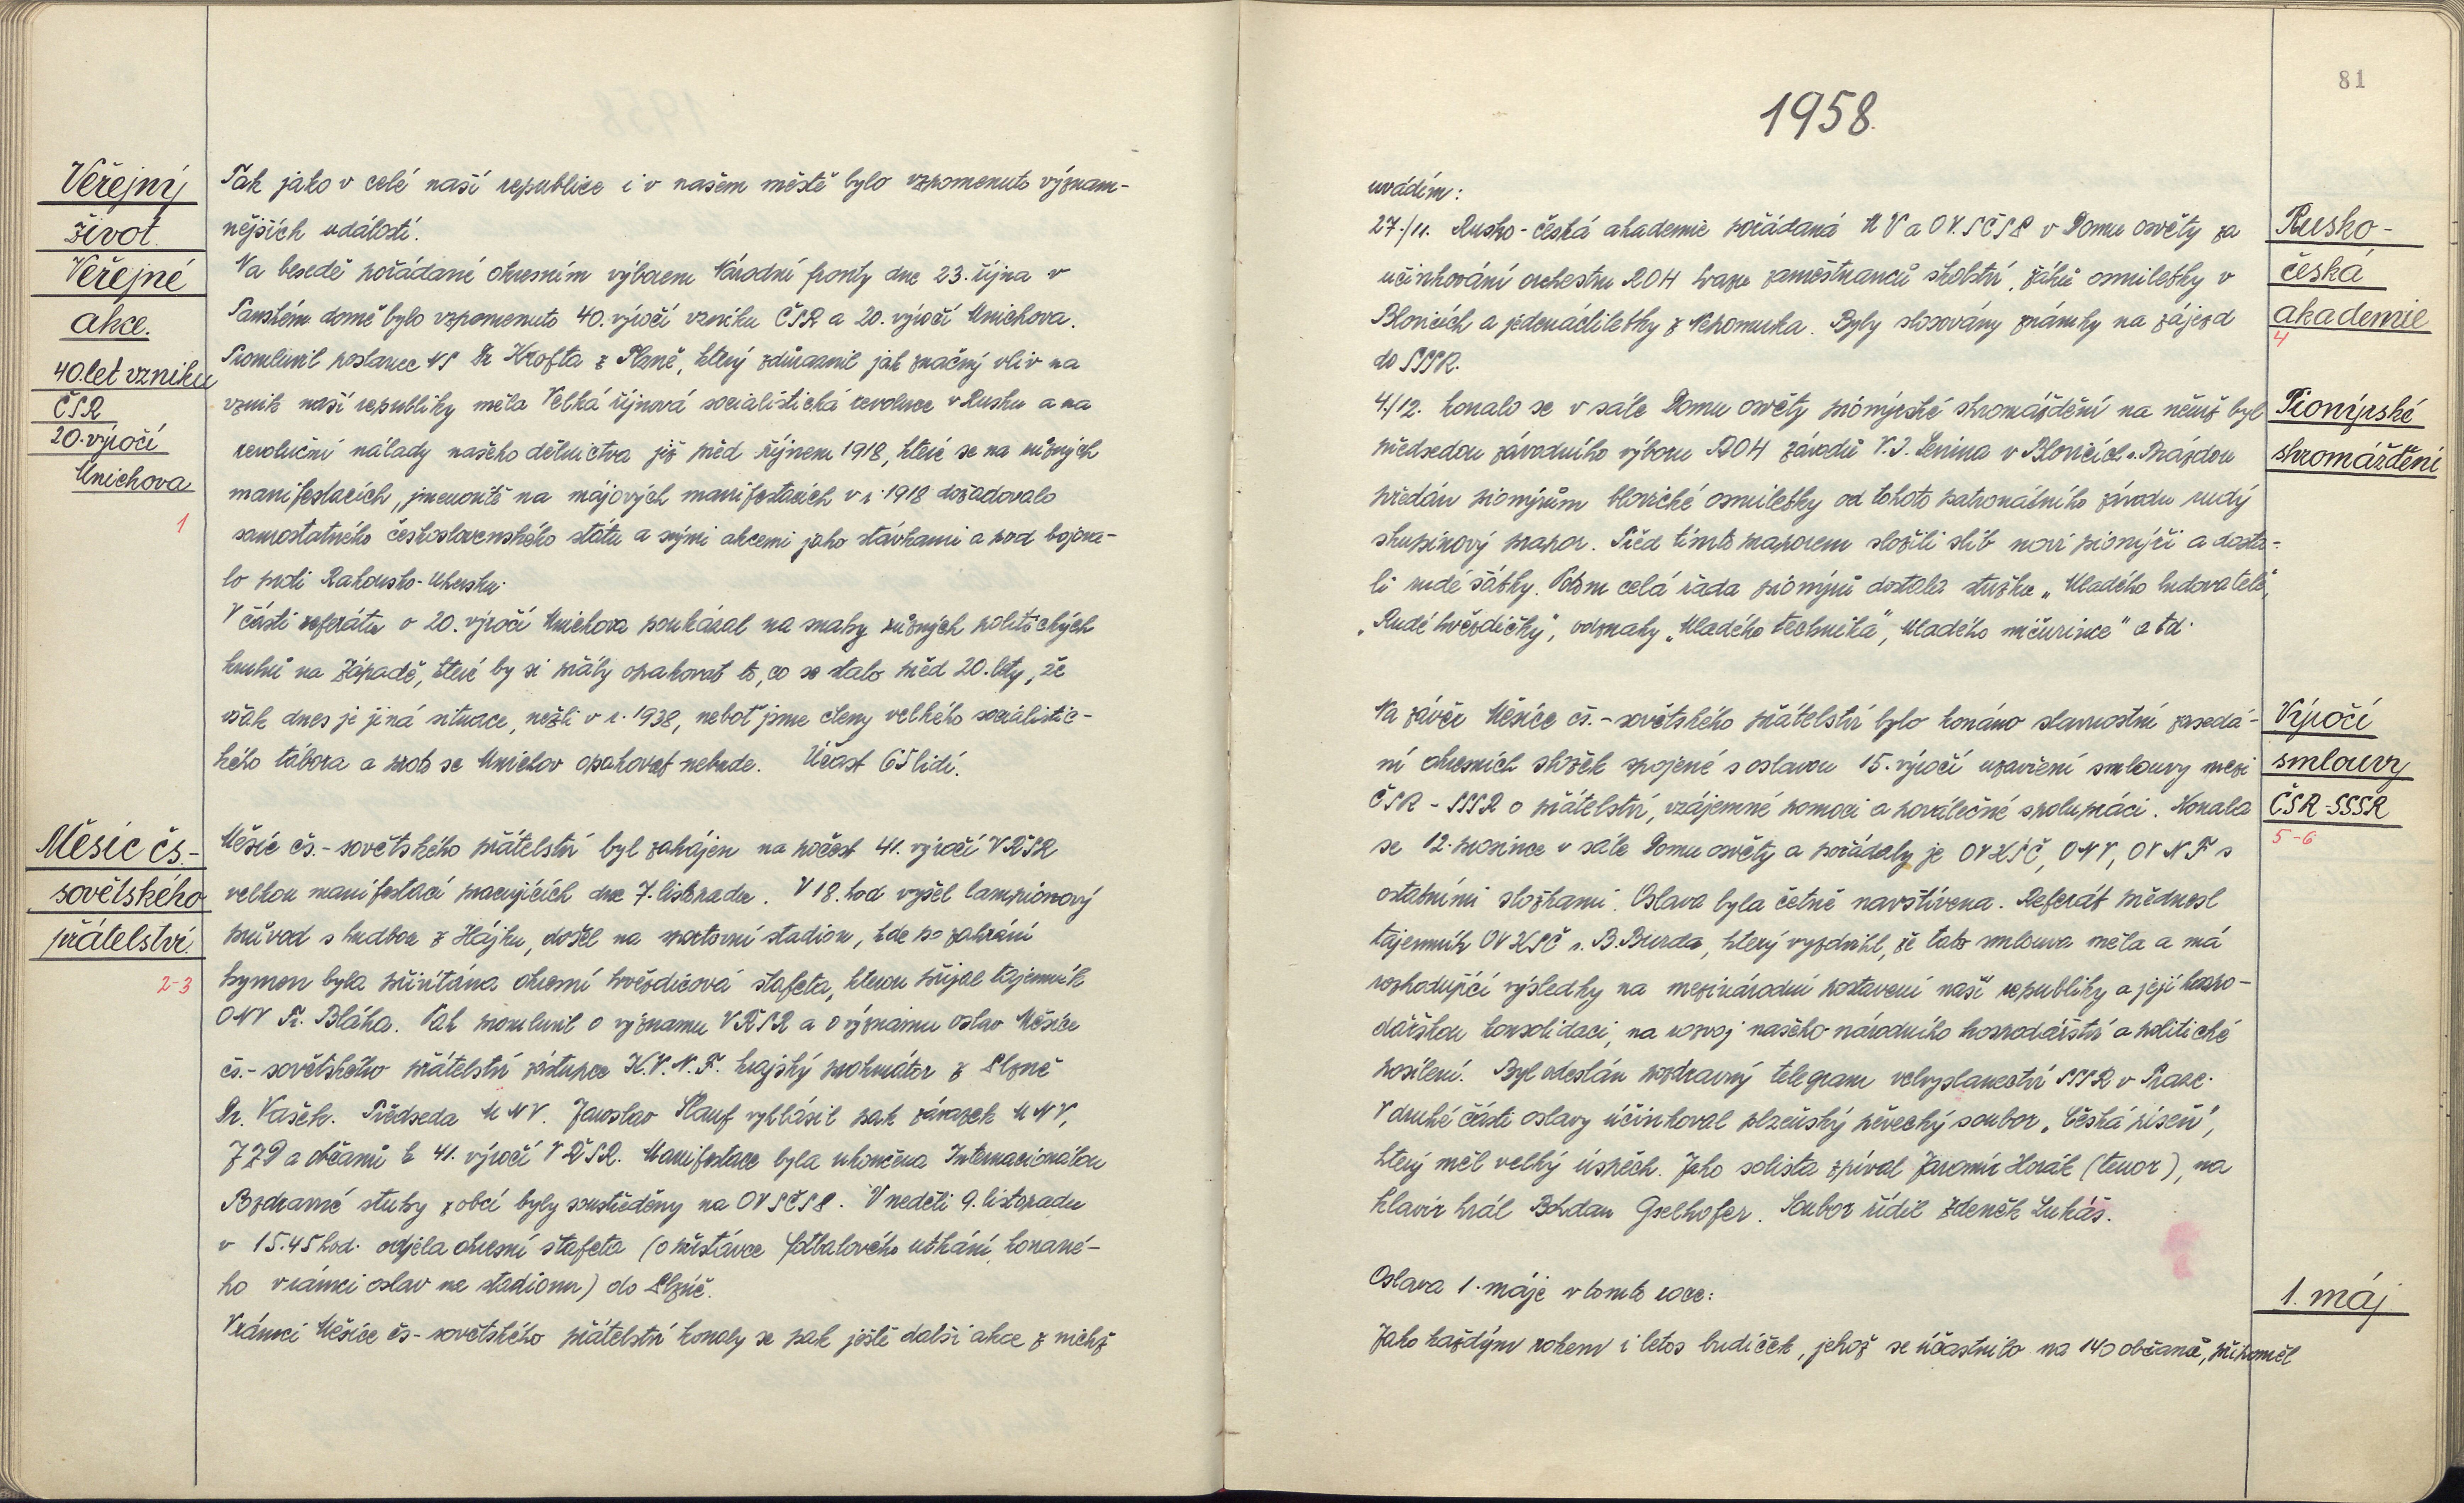 Veřejný
život.
Veřejné
akce.
40.let vzniku
ČSR
20.výročí
Mnichova
1
Tak jako v celé naší republice i v našem městě bylo vzpomenuto význam-
nějších událostí.
Na besedě pořádané okresním výborem Národní fronty dne 23. října v
Panském domě bylo vzpomenuto 40. výročí vzniku ČSR a 20. výročí Mnichova.
Promluvil poslanec NS Dr Krofta z Plzně, který zdůraznil jak značný vliv na
vznik naší republiky měla Velká říjnová socialistická revoluce v Rusku a na
revoluční nálady našeho dělnictva již před říjnem 1918, které se na různých
manifestacích, jmenovitě na májových manifestacích v r. 1918 dožadovalo
samostatného československého státu a svými akcemi jako stávkami a pod bojova-
lo proti Rakousko-Uhersku.
V části referátu o 20. výročí Mnichova poukázal na snahy různých politických
kruhů na Západě, které by si přály opakovat to, co se stalo před 20. lety, že
však dnes je jiná situace, nežli v r. 1938, neboť jsme členy velkého socialistic-
kého tábora a proto se Mnichov opakovat nebude. Účast 65 lidí.
Měsíc čs.-
sovětského
přátelství.
2-3
Měsíc čs.-sovětského přátelství byl zahájen na počest 41. výročí VŘSR
velkou manifestací pracujících dne 7. listopadu. V 18. hod vyšel lampionový
průvod s hudbou z Hájku, došel na sportovní stadion, kde po zahrání
hymen byla přivítána okresní hvězdicová štafeta, kterou přijal tajemník
ONV Fr. Bláha. Pak promluvil o významu VŘSR a o významu oslav Měsíce
čs.-sovětského přátelství zástupce K.V.N.F. krajský prokurátor z Plzně
Dr. Vašek. Předseda MNV. Jaroslav Štauf vyhlásil pak závazek MNV,
JZD a občanů k 41. výročí VŘSR. Manifestace byla ukončena Internacionálou
Pozdravné stuhy z obcí byly soustředěny na OVSČSP. V neděli 9. listopadu
v 15.45 hod. odjela okresní štafeta (o přestávce fotbalového utkání, konané-
ho v rámci oslav na stadionu) do Plzně.
V rámci Měsíce čs-sovětského přátelství konaly se pak ještě další akce z nichž
81
1958.
uvádím:
27./11. Rusko-česká akademie pořádaná MV a OV.SČSP v Domu osvěty za
účinkování orchestru ROH svazu zaměstnanců školství, žáků osmiletky v
Blovicích a jedenáctiletky z Nepomuka. Byly slosovány známky na zájezd
do SSSR.
Rusko-
česká
akademie
4
4./12. konalo se v sále Domu osvěty pionýrské shromáždění na němž byl
předsedou závodního výboru ROH závodů V.I. Lenina v Blovicích s. Prázdou
předán pionýrům blovické osmiletky od tohoto patronátního závodu rudý
skupinový prapor. Před tímto praporem složili slib noví pionýři a dosta-
li rudé šátky. Potom celá řada pionýrů dostala stužku „Mladého budovatele“,
„Rudé hvězdičky“, odznaky „Mladého technika“, Mladého mičurince“ a td.
Pionýrské
shromáždění
Na závěr Měsíce čs.-sovětského přátelství bylo konáno slavnostní zasedá-
ní okresních složek spojené s oslavou 15. výročí uzavření smlouvy mezi
ČSR - SSSR o přátelství, vzájemné pomoci a poválečné spolupráci. Konala
se 12. prosince v sále Domu osvěty a pořádaly je OVKSČ, ONV, OVNF s
ostatními složkami. Oslava byla četně navštívena. Referát přednesl
tajemník OVKSČ s. B. Burda, který vyzdvihl, že tato smlouva měla a má
rozhodující výsledky na mezinárodní postavení naší republiky a její hospo-
dářskou konsolidaci, na rozvoj našeho národního hospodářství a politické
posílení. Byl odeslán pozdravný telegram velvyslanectví SSSR v Praze.
V druhé části oslavy účinkoval plzeňský pěvecký soubor „Česká píseň“,
který měl velký úspěch. Jeho solista zpíval Jaromír Horák (tenor), na
klavír hrál Bohdan Gselhofer. Soubor řídil Zdeněk Lukáš.
Výročí
smlouvy
ČSR-SSSR
5-6
Oslava 1. máje v tomto roce:
1. máj
Jako každým rokem i letos budíček, jehož se účastnilo na 140 občanů, připoměl